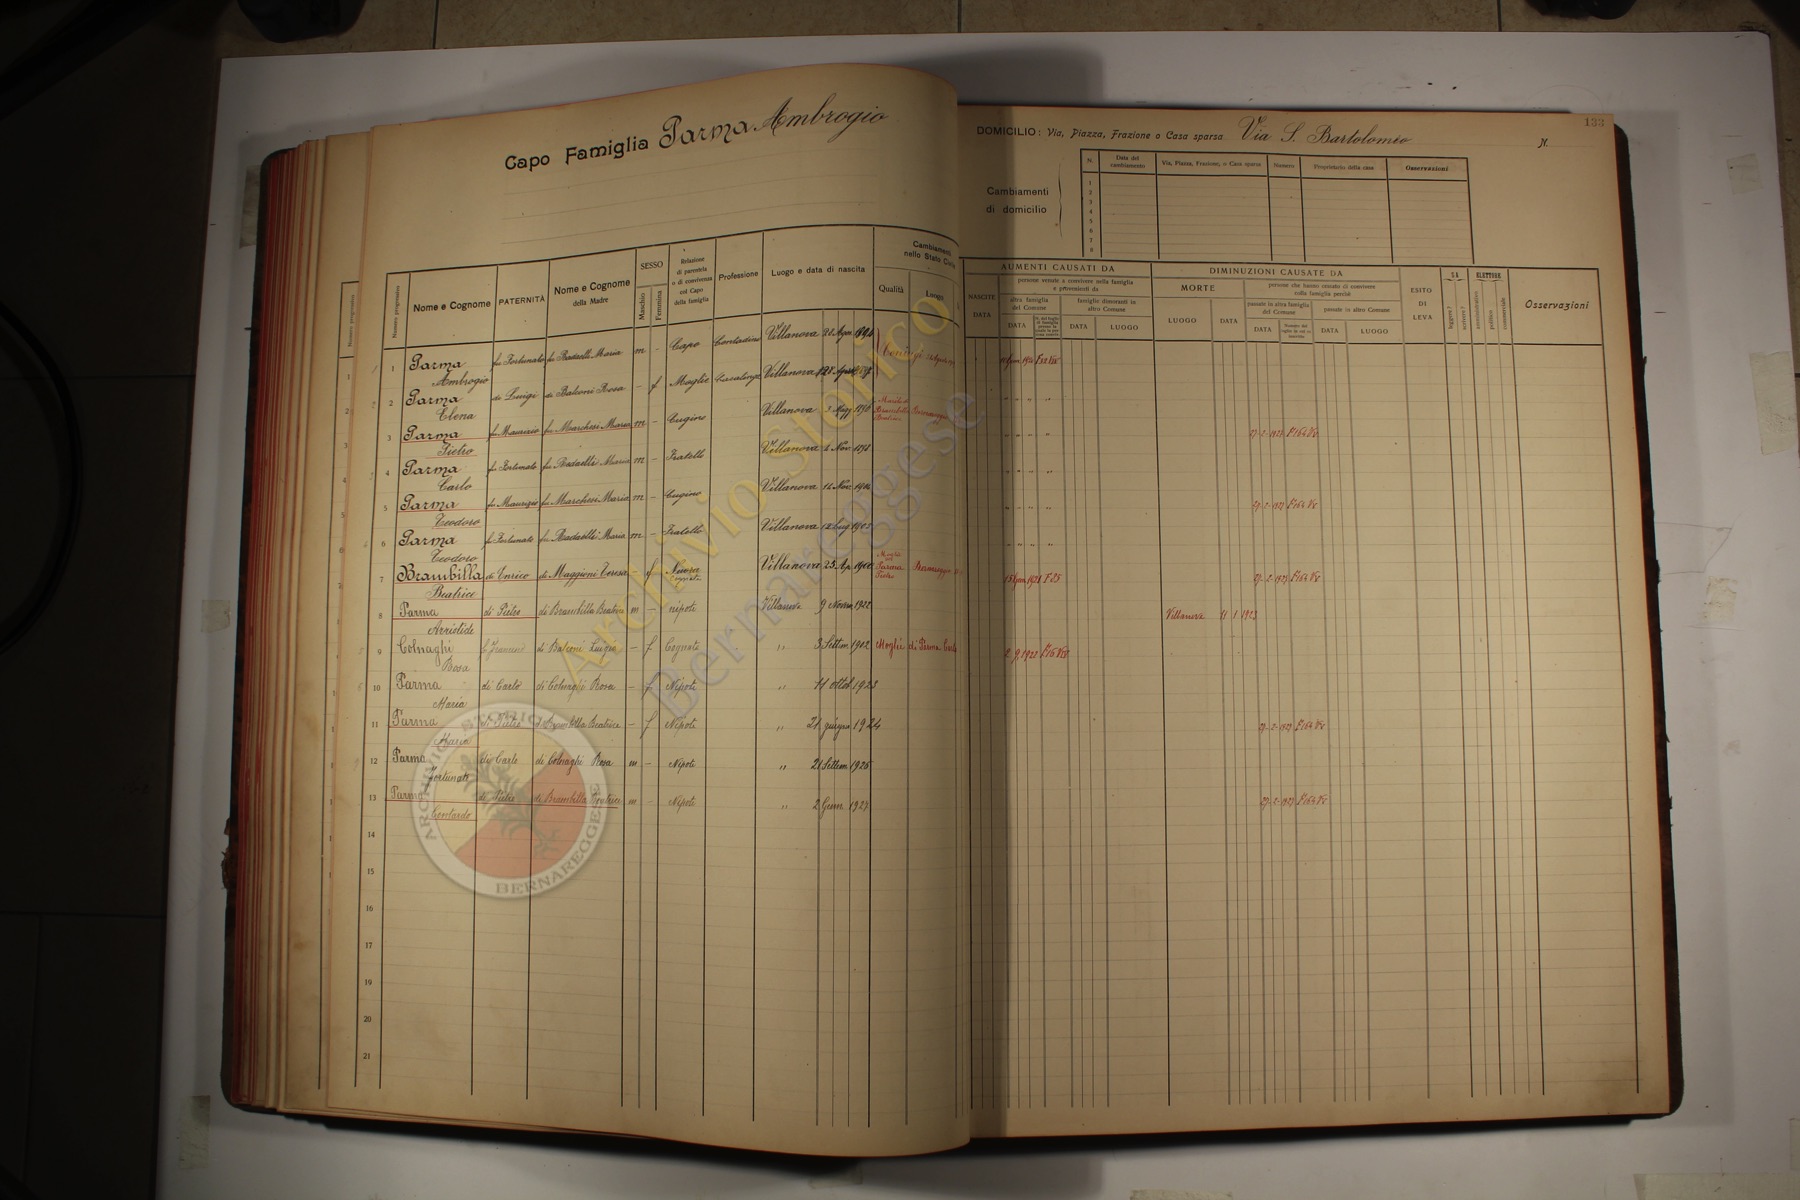 Capo Famiglia Parma Ambrogio
DOMICILIO: Via, Piazza, Frazione o Casa sparsa Via S. Bartolomeo N.
133
Cambiamenti di domicilio
N. Data del cambiamento Via, Piazza, Frazione, o Casa sparsa Numero Proprietario della casa Osservazioni
1
2
3
4
5
6
7
8
Numero progressivo Nome e Cognome PATERNITÀ Nome e Cognome della Madre SESSO Maschio Femmina Relazione di parentela o di convivenza col Capo della famiglia Professione Luogo e data di nascita Cambiamenti nello Stato Civile Qualità Luogo
NASCITE DATA AUMENTI CAUSATI DA persone venute a convivere nella famiglia e provenienti da altra famiglia del Comune DATA famiglie dimoranti in altro Comune DATA LUOGO
DIMINUZIONI CAUSATE DA MORTE LUOGO DATA persone che hanno cessato di convivere colla famiglia perchè passate in altra famiglia del Comune DATA passate in altro Comune DATA LUOGO
ESITO DI LEVA SA leggere? scrivere? ELETTORE amministrativo politico commerciale Osservazioni
1 Parma Ambrogio fu Fortunato fu Radaelli Maria m - Capo Contadino Villanova 28 Agos. 1894 Coniugi
2 Parma Elena di Luigi di Balconi Rosa - f Moglie Casalinga Villanova
3 Parma Pietro fu Maurizio fu Marchesi Maria m - Cugino Villanova 3 Magg 1896 Marito Brambilla Beatrice 27-2-1927 F° 164 VS
4 Parma Carlo fu Fortunato fu Radaelli Maria m - Fratello Villanova 4 Nov. 1898
5 Parma Teodoro fu Maurizio fu Marchesi Maria m - Cugino Villanova 12 Nov. 1902 27-2-1927 F° 164 VS
6 Parma Teodoro fu Fortunato fu Radaelli Maria m - Fratello Villanova 12 Lug 1903
7 Brambilla Beatrice di Enrico di Maggioni Teresa - f Villanova 25 Ap. 1900 Moglie con Parma Pietro Bernareggio F 25 27-2-1927 F° 164 VS
8 Parma Aristide di Pietro di Brambilla Beatrice m - nipote Villanova 9 Novem 1922 Villanova 11 1 1923
9 Colnaghi Rosa di Balconi Luigia - f Cognata " 3 Settem 1902 Moglie di Parma Carlo 2 9 1922
10 Parma Maria di Carlo di Colnaghi Rosa - f Nipote " 11 ottob 1923
11 Parma Maria di Pietro di Brambilla Beatrice - f Nipote " 21 giugno 1924 27-2-1927 F° 164 VS
12 Parma Fortunato di Carlo di Colnaghi Rosa m - Nipote " 21 Settem 1925
13 Parma Gontardo di Pietro di Brambilla Beatrice m - Nipote " 2 Genn 1927 27-2-1927 F° 164 VS
14
15
16
17
18
19
20
21
Archivio storico
Bernareggese
ARCHIVIO STORICO
BERNAREGGESE